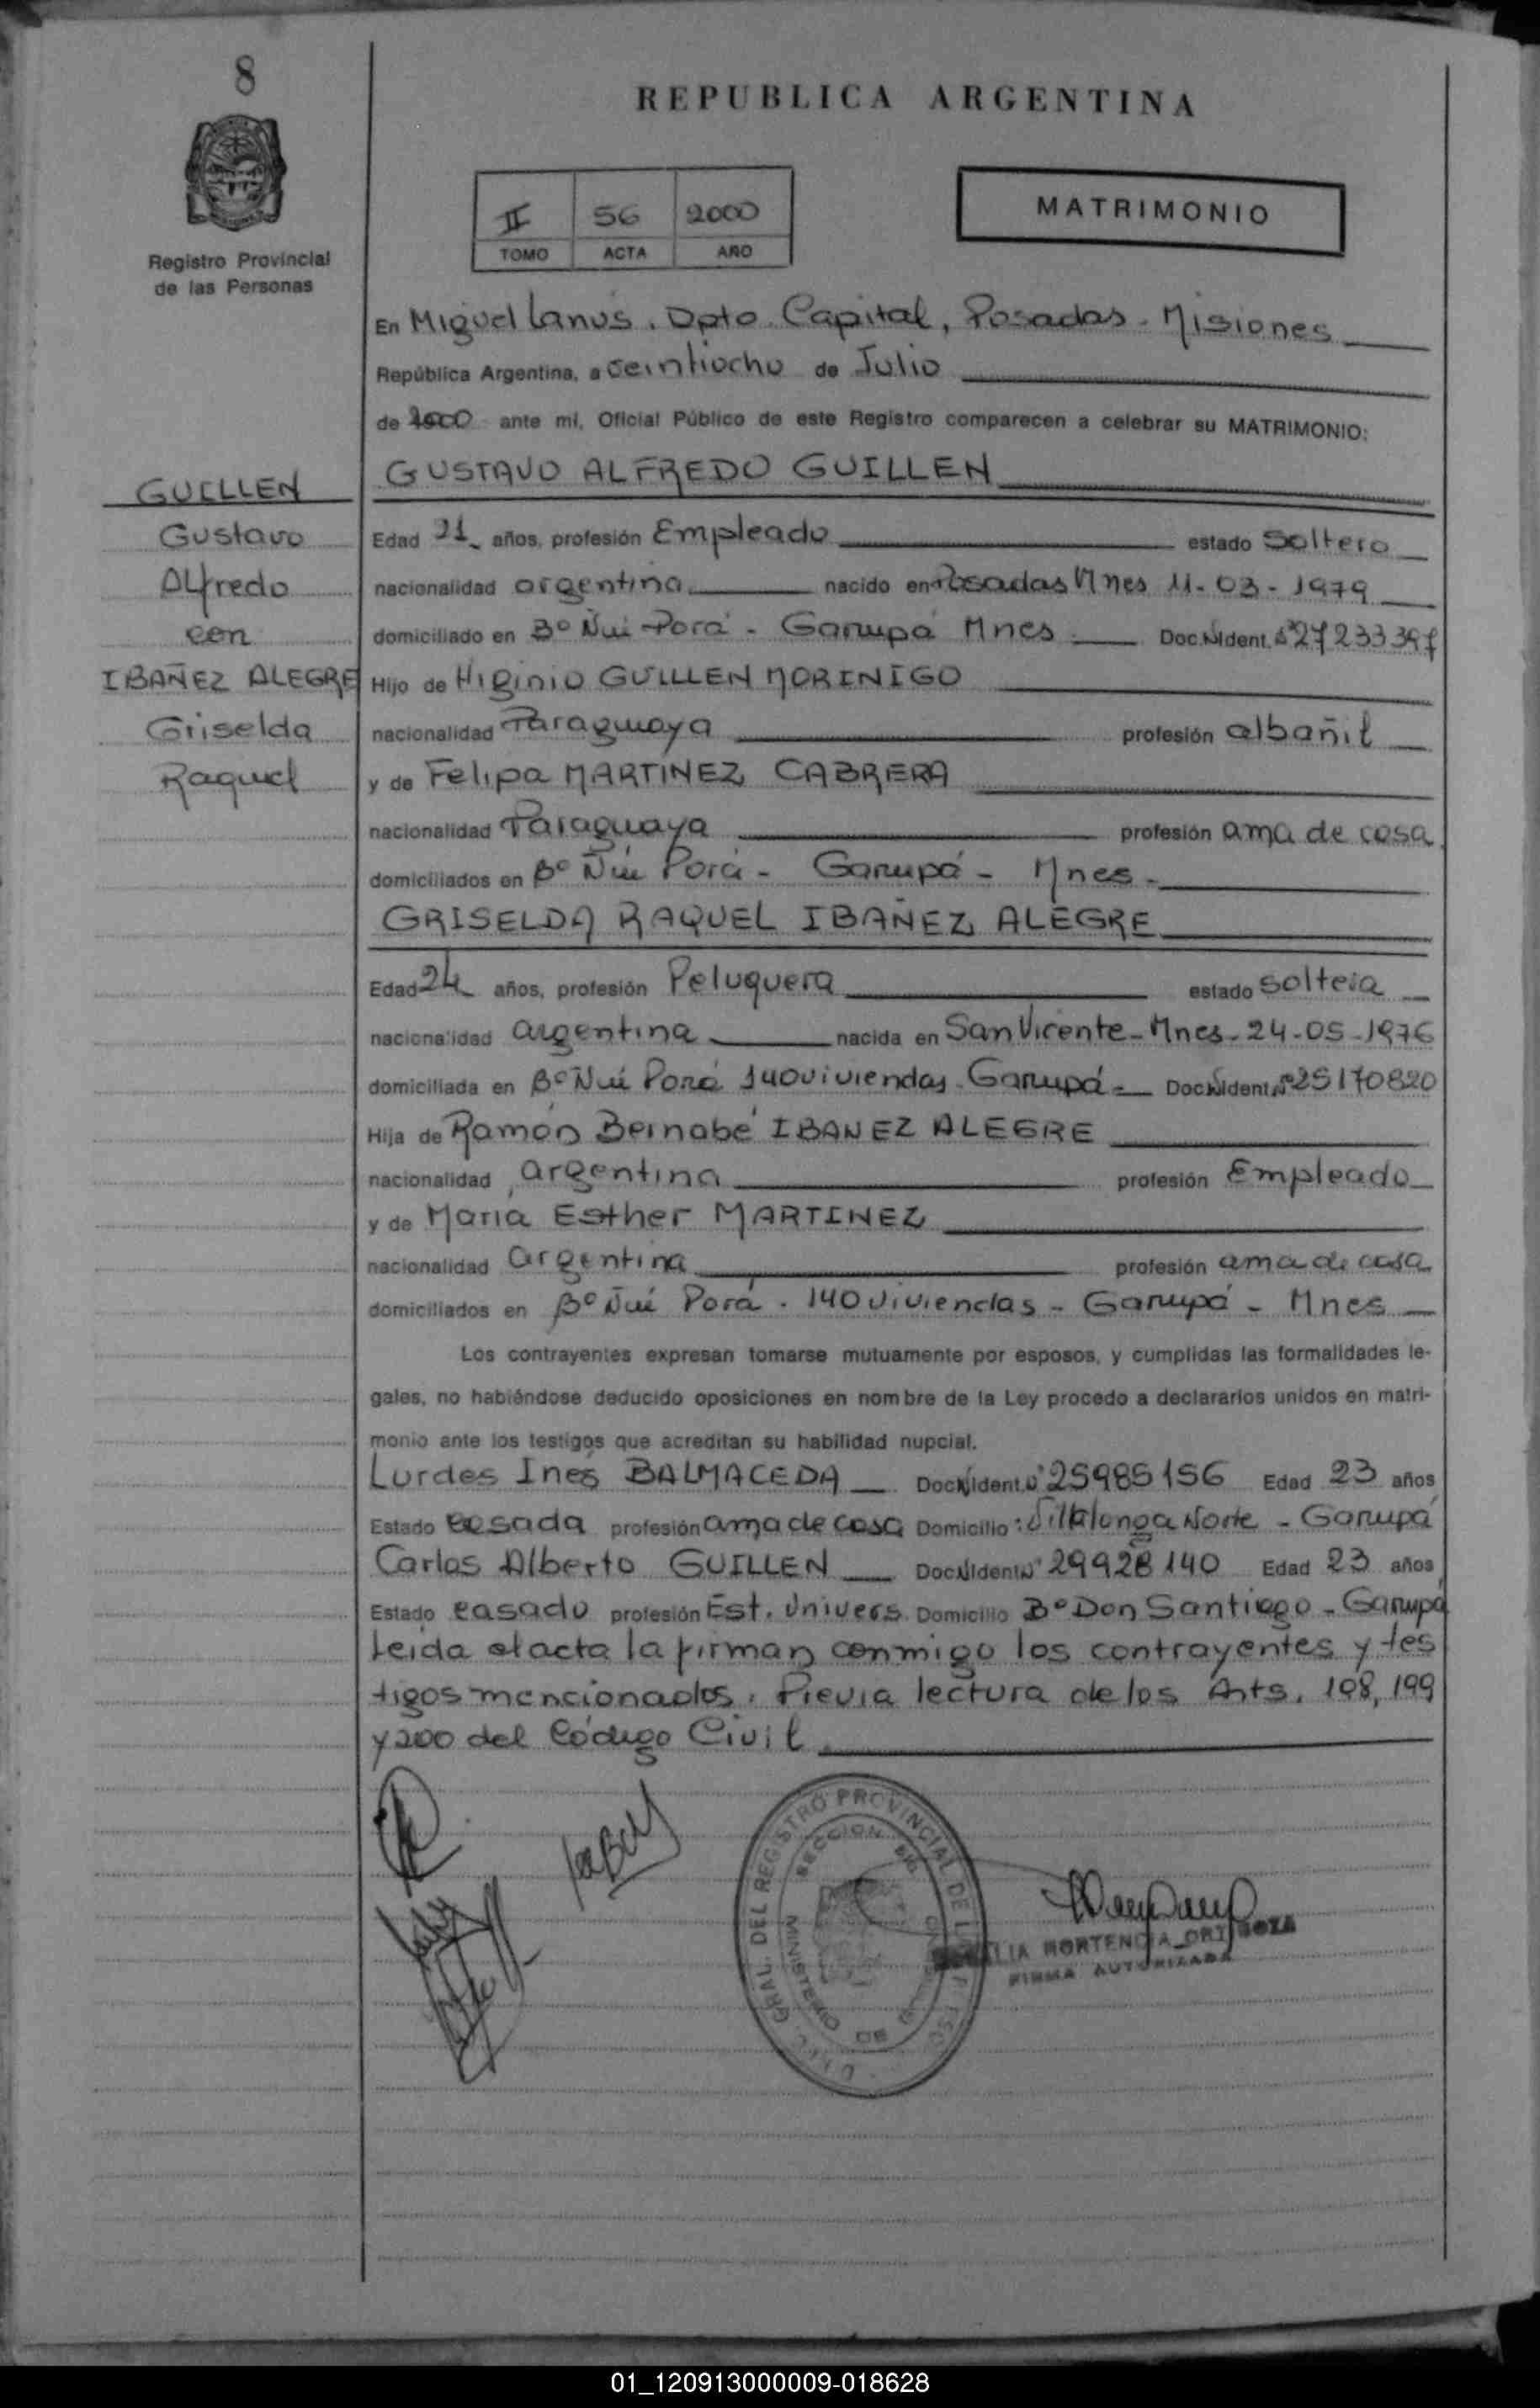 8
REPUBLICA ARGENTINA
II 56 2000
TOMO ACTA AÑO
MATRIMONIO
Registro Provincial
de las Personas
En Miguel Lanús. Dpto. Capital, Posadas - Misiones
República Argentina, a veintiocho de Julio
de 2000 ante mi, Oficial Público de este Registro comparecen a celebrar su MATRIMONIO:
GUSTAVO ALFREDO GUILLEN
GUILLEN
Gustavo
Alfredo
con
IBAÑEZ ALEGRE
Griselda
Raquel
Edad 21 años, profesión Empleado estado Soltero
nacionalidad argentina nacido en Posadas Mnes 11-03-1979
domiciliado en Bº Ñui Porá - Garupá Mnes Doc. Nl Ident. Nº 27233397
Hijo de Higinio GUILLEN MORINIGO
nacionalidad Paraguaya profesión albañil
y de Felipa MARTINEZ CABRERA
nacionalidad Paraguaya profesión ama de casa
domiciliados en Bº Ñui Porá - Garupá - Mnes -
GRISELDA RAQUEL IBAÑEZ ALEGRE
Edad 24 años, profesión Peluquera estado soltera
nacionalidad argentina nacida en San Vicente - Mnes - 24-05-1976
domiciliada en Bº Ñui Porá 140 viviendas - Garupá - Doc Nl Ident Nº 25170820
Hija de Ramón Bernabé IBAÑEZ ALEGRE
nacionalidad argentina profesión Empleado
y de Maria Esther MARTINEZ
nacionalidad argentina profesión ama de casa
domiciliados en Bº Ñui Porá - 140 viviendas - Garupá - Mnes
Los contrayentes expresan tomarse mutuamente por esposos, y cumplidas las formalidades le-
gales, no habiéndose deducido oposiciones en nombre de la Ley procedo a declararlos unidos en matri-
monio ante los testigos que acreditan su habilidad nupcial.
Lurdes Inés BALMACEDA Doc Nl Ident. Nº 25985156 Edad 23 años
Estado casada profesión ama de casa Domicilio: Villalonga Norte - Garupá
Carlos Alberto GUILLEN Doc Nl Ident Nº 29928140 Edad 23 años
Estado casado profesión Est. Univers. Domicilio Bº Don Santiago - Garupá
Leida el acta la firman conmigo los contrayentes y tes
tigos mencionados. Previa lectura de los Arts. 198, 199
y 200 del Código Civil
DIREC. GRAL. DEL REGISTRO PROVINCIAL DE LAS
SECCION
MINISTERIO DE
LIA HORTENCIA
FIRMA AUTORIZADA
01_120913000009-018628